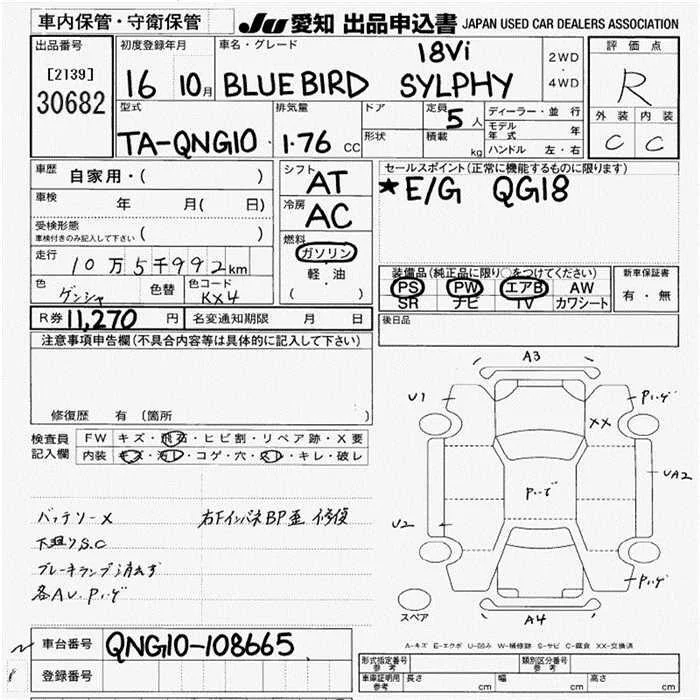 車内保管・守衛保管
JU 愛知 出品申込書 JAPAN USED CAR DEALERS ASSOCIATION
出品番号
[2139]
30682
初度登録年月
16 10月
車名・グレード
18Vi
BLUEBIRD SYLPHY
2WD
・
4WD
評価点
R
外装 内装
C C
型式
TA-QNG10
排気量
1.76 CC
ドア
形状
定員
5人
積載
kg
ディーラー・並行
モデル年式 年
ハンドル 左・右
車歴
自家用・( )
車検
年 月( 日)
受検形態
車検付きのみ記入して下さい ( )
走行
10万5千992km
色
ゲンシャ
色替
色コード
KX4
シフト
AT
冷房
AC
燃料
ガソリン
軽・油
( )
セールスポイント(正常に機能するものに限ります)
★E/G QG18
装備品(純正品に限り○をつけてください)
PS PW エアB AW
SR ナビ TV カワシート
新車保証書
有・無
R券 11,270 円
名変通知期限 月 日
後日品
注意事項申告欄(不具合内容等は具体的に記入して下さい)
修復歴 有(箇所 )
検査員
記入欄
FW キズ・飛石・ヒビ割・リペア跡・X要
内装 キズ・汚レ・コゲ・穴・スレ・キレ・破レ
バッテリーX 右FインパネBP歪 修復
下廻りS.C
ブレーキランプ消えず
各AU.Pいげ
A3
U1
Pいげ
XX
UA2
Pいげ
U2
Pいげ
スペア
A4
A-キズ E-エクボ U-凹み W-補修跡 S-サビ C-腐食 XX-交換済
車台番号 QNG10-108665
登録番号
形式指定番号
参考
類別区分番号
参考
車庫証明用
参考
長さ cm 幅 cm 高さ cm